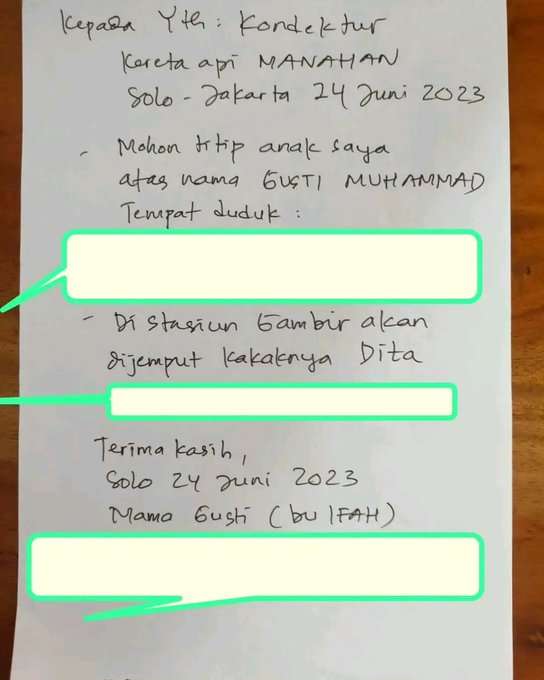 Kepada Yth : Kondektur
Kereta api MANAHAN
Solo - Jakarta 24 Juni 2023
- Mohon titip anak saya
atas nama GUSTI MUHAMMAD
Tempat duduk :
- Di Stasiun Gambir akan
dijemput kakaknya Dita
Terima kasih,
Solo 24 Juni 2023
Mama Gusti (bu IFAH)